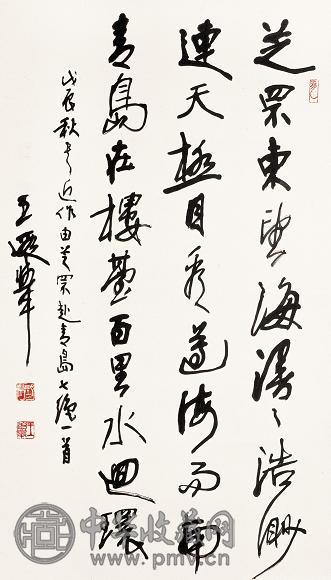 芝罘東望海漫〻浩渺
連天極目看遵海而南
青島在樓臺百里水迴環
戊辰秋書近作由芝罘赴青島七絕一首
王遐舉
中華收藏网
www.pmv.cn